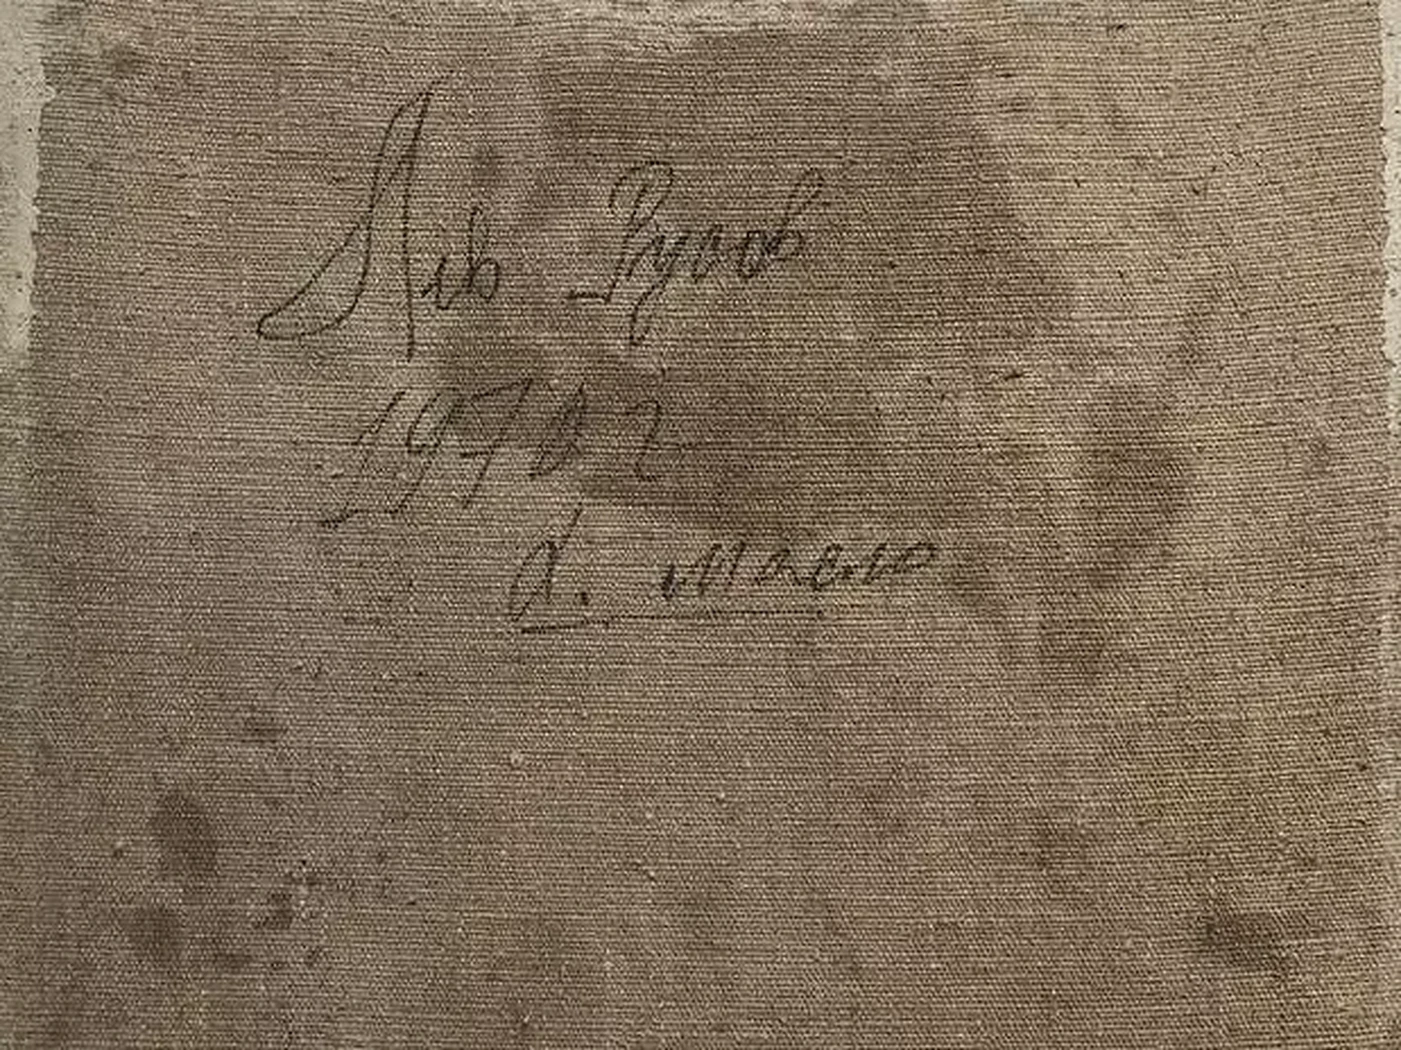 Лев Русов
1970 г
х. масло